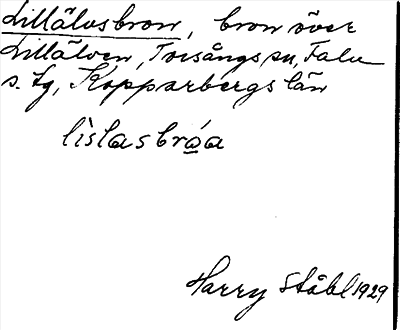 Lillälvsbron, bron över
Lillälven, Torsångs sn, Falu
s. tg, Kopparbergs län
lìslasbróa
Harry Ståhl 1929